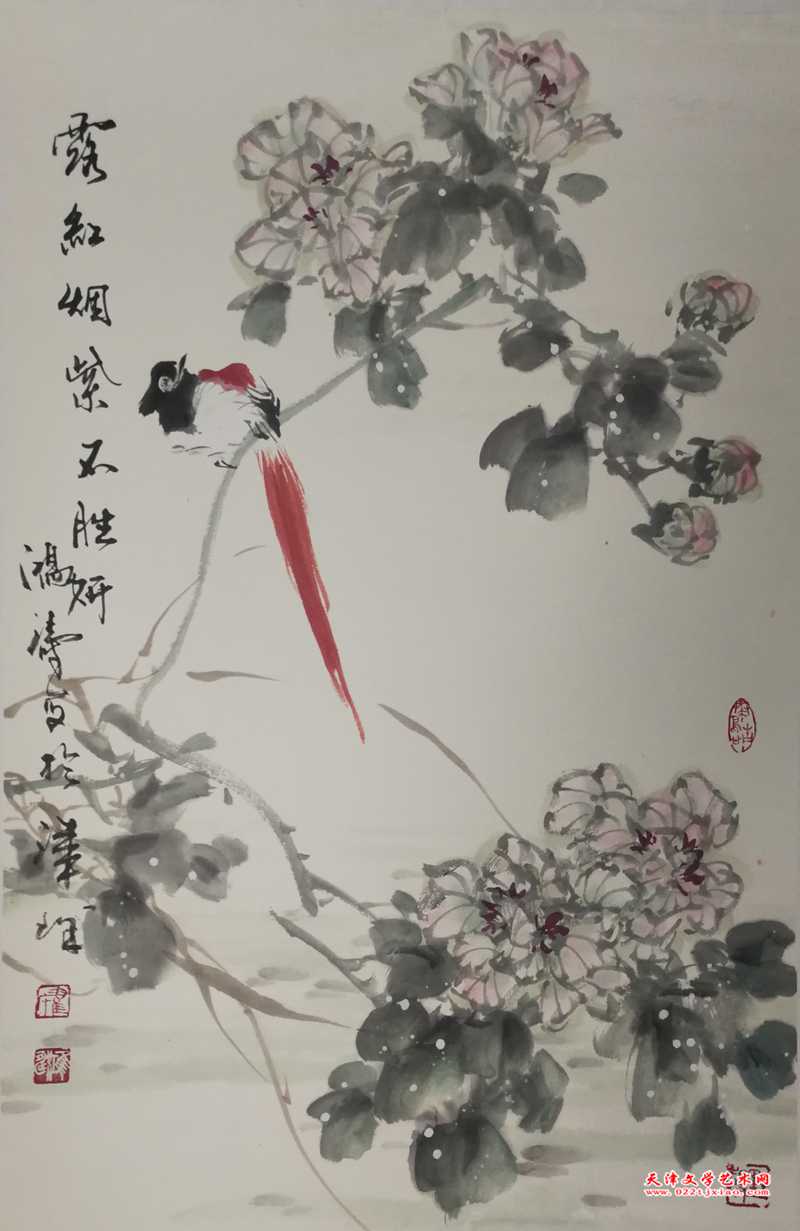 露红烟紫不胜妍
鸿涛写于津
天津文学艺术网
www.022tjxiao.com